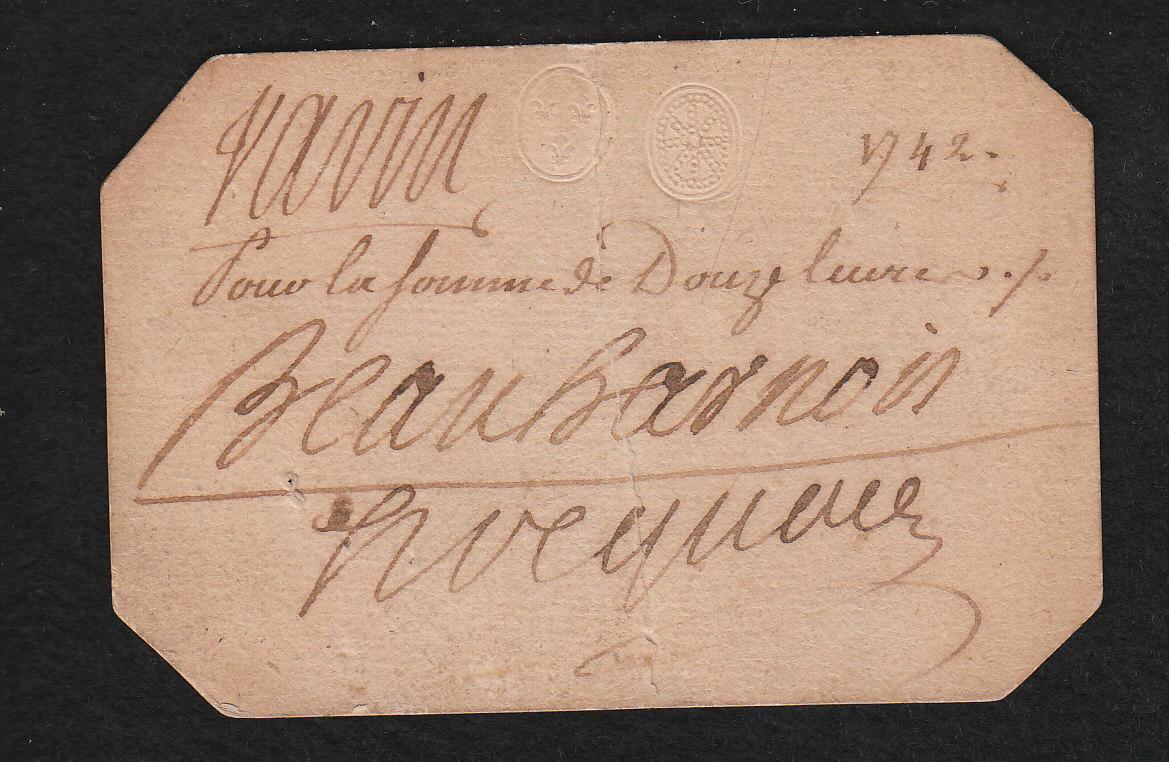 Varin
1742.
Pour la somme de Douze livres ./.
Beauharnois
Hocquart